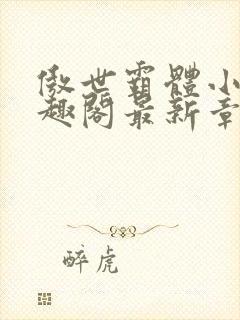 傲世霸體小
趣閣最新章
醉虎